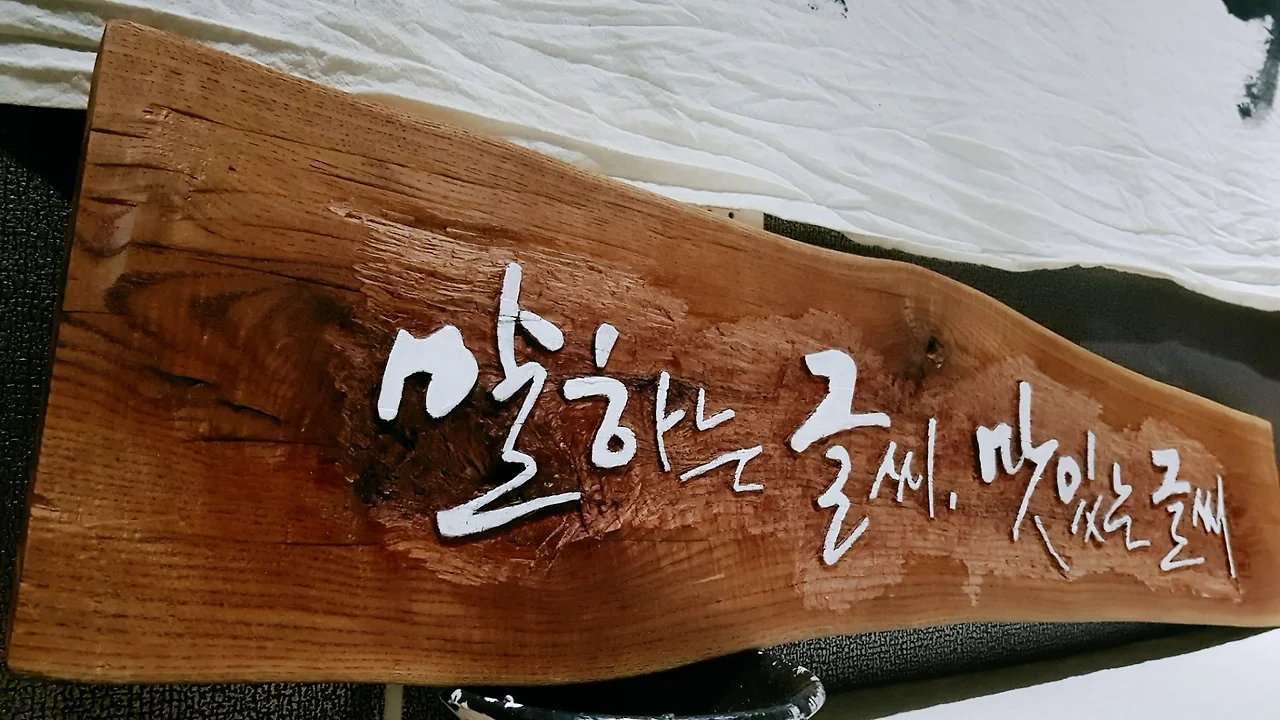 말하는 글씨, 맛있는 글씨